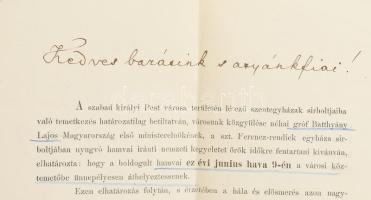 Kedves barátink s atyánkfiai!
A szabad királyi Pest városa területén lé ező szentegyházak sirboltjaiba
való temetkezés határozatilag betiltatván, városunk közgyülése néhai gróf Batthyány
Lajos Magyarország első ministerelnökének, a szt. Ferencz-rendiek egyháza sir-
boltjában nyugvó hamvai iránti nemzeti kegyeletet örök időkre fentartani kivánván,
elhatározta: hogy a boldogult hamvai ez évi junius hava 9-én a városi köz-
temetőbe ünnepélyesen áthelyeztessenek.
Ezen elhatározás folytán, s érzetében a hála és elösmerés azon nagy-